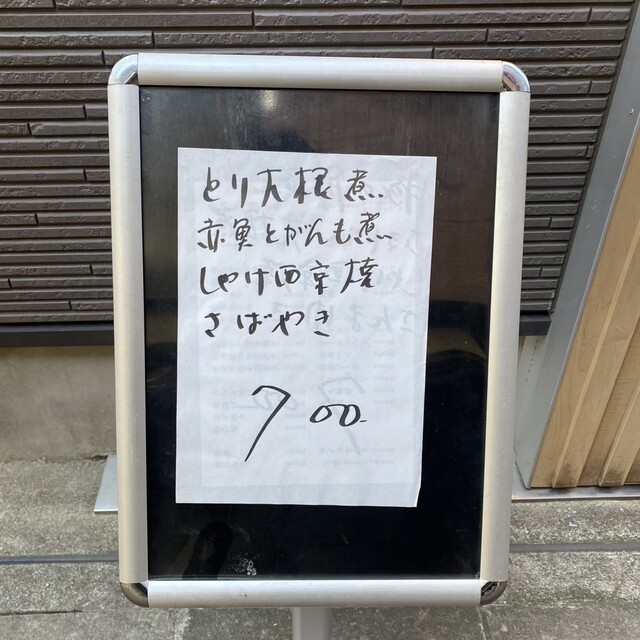 とり大根煮
赤魚とがんも煮
しゃけ西京焼
さばやき
700-